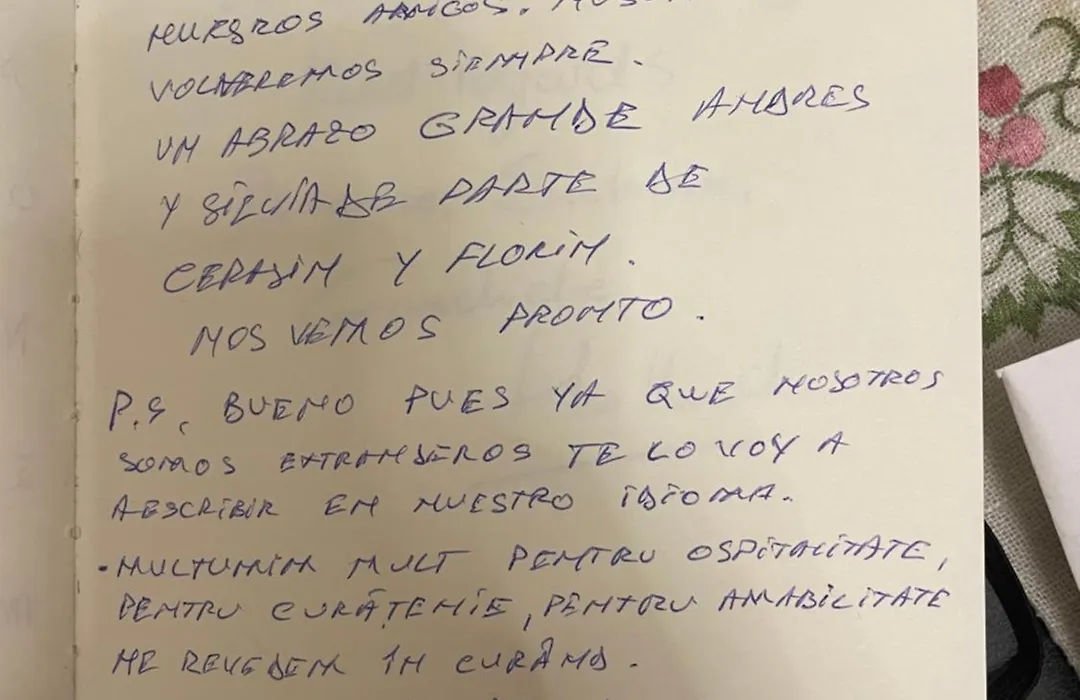 NUESTROS AMIGOS.
VOLVEREMOS SIEMPRE.
UN ABRAZO GRANDE ANDRES
Y SILVIA DE PARTE DE
CERASIM Y FLORIN.
NOS VEMOS PRONTO.
P.S. BUENO PUES YA QUE NOSOTROS
SOMOS EXTRANJEROS TE LO VOY A
AESCRIBIR EN NUESTRO IDIOMA.
• MULTUMIM MULT PENTRU OSPITALITATE,
PENTRU CURĂȚENIE, PENTRU AMABILITATE
NE REVEDEM ÎN CURÂND.